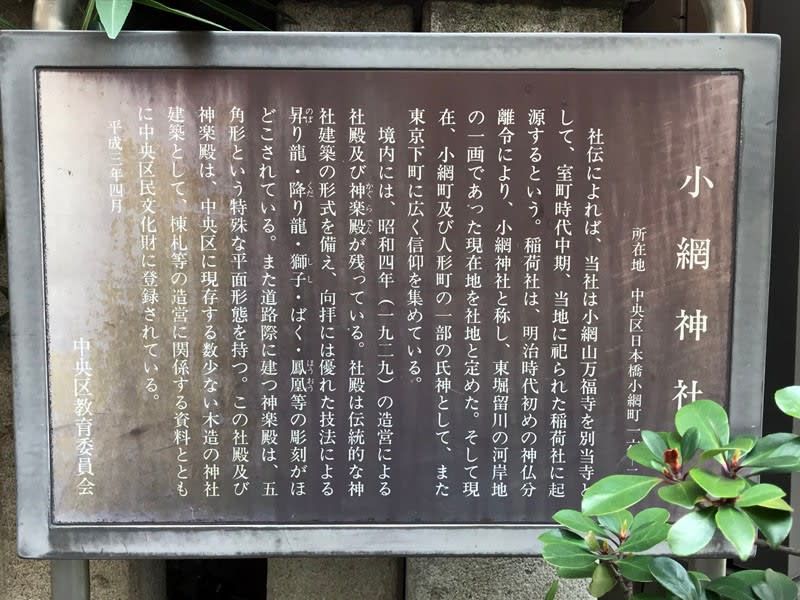 小網神社
所在地 中央区日本橋小網町一
社伝によれば、当社は小網山万福寺を別当寺と
して、室町時代中期、当地に祀られた稲荷社に起
源するという。稲荷社は、明治時代初めの神仏分
離令により、小網神社と称し、東堀留川の河岸地
の一画であった現在地を社地と定めた。そして現
在、小網町及び人形町の一部の氏神として、また
東京下町に広く信仰を集めている。
境内には、昭和四年（一九二九）の造営による
社殿及び神楽殿が残っている。社殿は伝統的な神
社建築の形式を備え、向拝には優れた技法による
昇り龍・降り龍・獅子・ばく・鳳凰等の彫刻がほ
どこされている。また道路際に建つ神楽殿は、五
角形という特殊な平面形態を持つ。この社殿及び
神楽殿は、中央区に現存する数少ない木造の神社
建築として、棟札等の造営に関係する資料ととも
に中央区民文化財に登録されている。
平成三年四月
中央区教育委員会